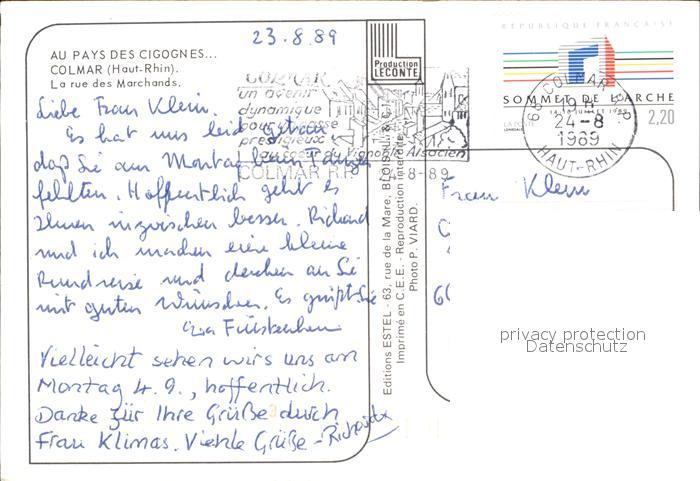 23.8.89
AU PAYS DES CIGOGNES...
COLMAR (Haut-Rhin).
La rue des Marchands.
Liebe Frau Klein.
Es hat uns leid getan
daß Sie am Montag beim
fehlten. Hoffentlich geht es
Ihnen inzwischen besser. Richard
und ich machen eine kleine
Rundreise und denken an Sie
mit guten Wünschen. Es grüßt Sie
Vielleicht sehen wir uns am
Montag 4.9., hoffentlich.
Danke für Ihre Grüße durch
Frau Klimas. Viele Grüße - Richard
Production
LECONTE
COLMAR
un avenir
dynamique
pour un passé
prestigieux
au cœur du Vignoble Alsacien
COLMAR R.P. 24-8-89
Editions ESTEL - 63, rue de la Mare, BLOIS
Imprimé en C.E.E. - Reproduction interdite
Photo P. VIARD.
RÉPUBLIQUE FRANÇAISE
SOMMET DE L'ARCHE
2,20
68 COLMAR
19 H
24-8
1989
HAUT-RHIN
Frau Klein
privacy protection
Datenschutz